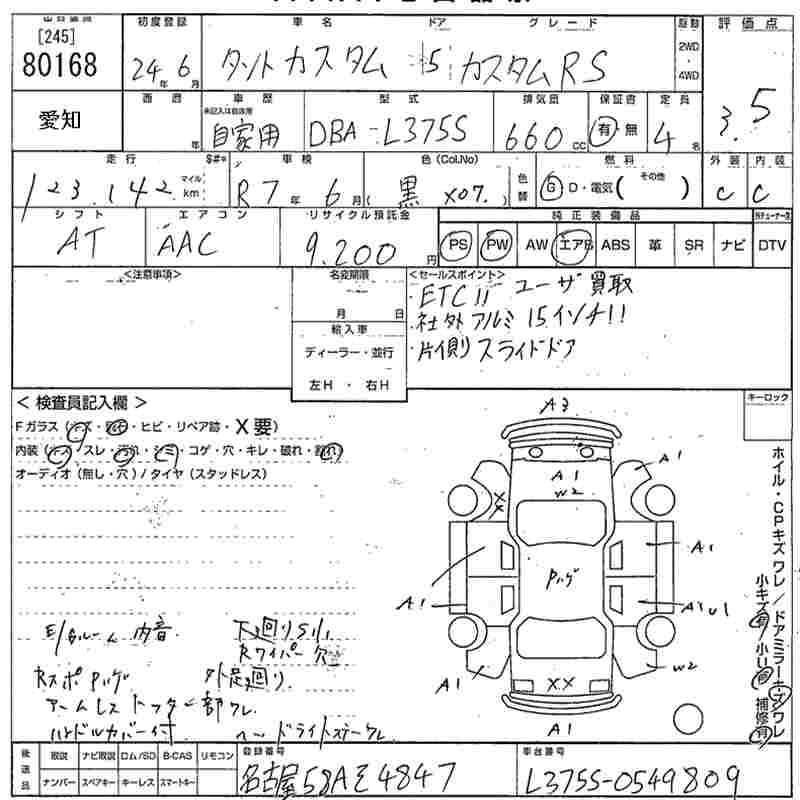 [245]
80168
初度登録
24年6月
車名 ドア グレード
タントカスタム 5 カスタムRS
駆動
2WD
・
4WD
評価点
3.5
愛知
西暦
年
車歴
未記入は自家用
自家用
型式
DBA-L375S
排気量
660cc
保証書
有・無
定員
4名
走行 $#*
123,142 マイル km
車検
R7年6月
色(Col.No)
(黒 X07.)
色替
燃料
G D・電気( その他 )
外装 内装
C C
シフト
AT
エアコン
AAC
リサイクル預託金
9,200円
純正装備品
PS PW AW エアB ABS 革 SR ナビ DTV
<注意事項>
名変期限
月 日
輸入車
ディーラー・並行
左H ・ 右H
<セールスポイント>
・ETC!! ユーザ買取
・社外アルミ15インチ!!
・片側スライドドア
キーロック
< 検査員記入欄 >
Fガラス(キズ・飛石・ヒビ・リペア跡・X要)
内装(キズ・スレ・汚れ・シミ・コゲ・穴・キレ・破れ・割れ)
オーディオ(無し・穴)/タイヤ(スタッドレス)
E/gルーム内音 下廻りSサビ
Rワイパー欠
RスポPハゲ 外足廻り.
アームレストフタ一部ワレ
ハンドルカバー付 ヘッドライトステーワレ
A3
A1
A1
W2
X
X
A1
Pハゲ
A1
A1U1
A1
W2
XX
A1
ホイル・CPキズワレ/ドアミラーキズワレ
小キズ有 小U有 補修有
後送品
取説 ナビ取説 ロム/SD B-CAS リモコン
ナンバー スペアキー キーレス スマートキー
登録番号
名古屋58Aミ4847
車台番号
L375S-0549809